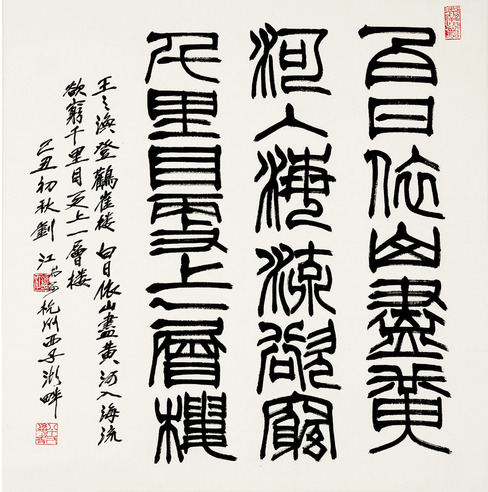 白日依山盡黃
河入海流欲窮
千里目更上一層樓
王之渙登鸛雀楼 白日依山盡黃河入海流
欲窮千里目更上一層楼
己丑初秋劉江 杭州西子湖畔